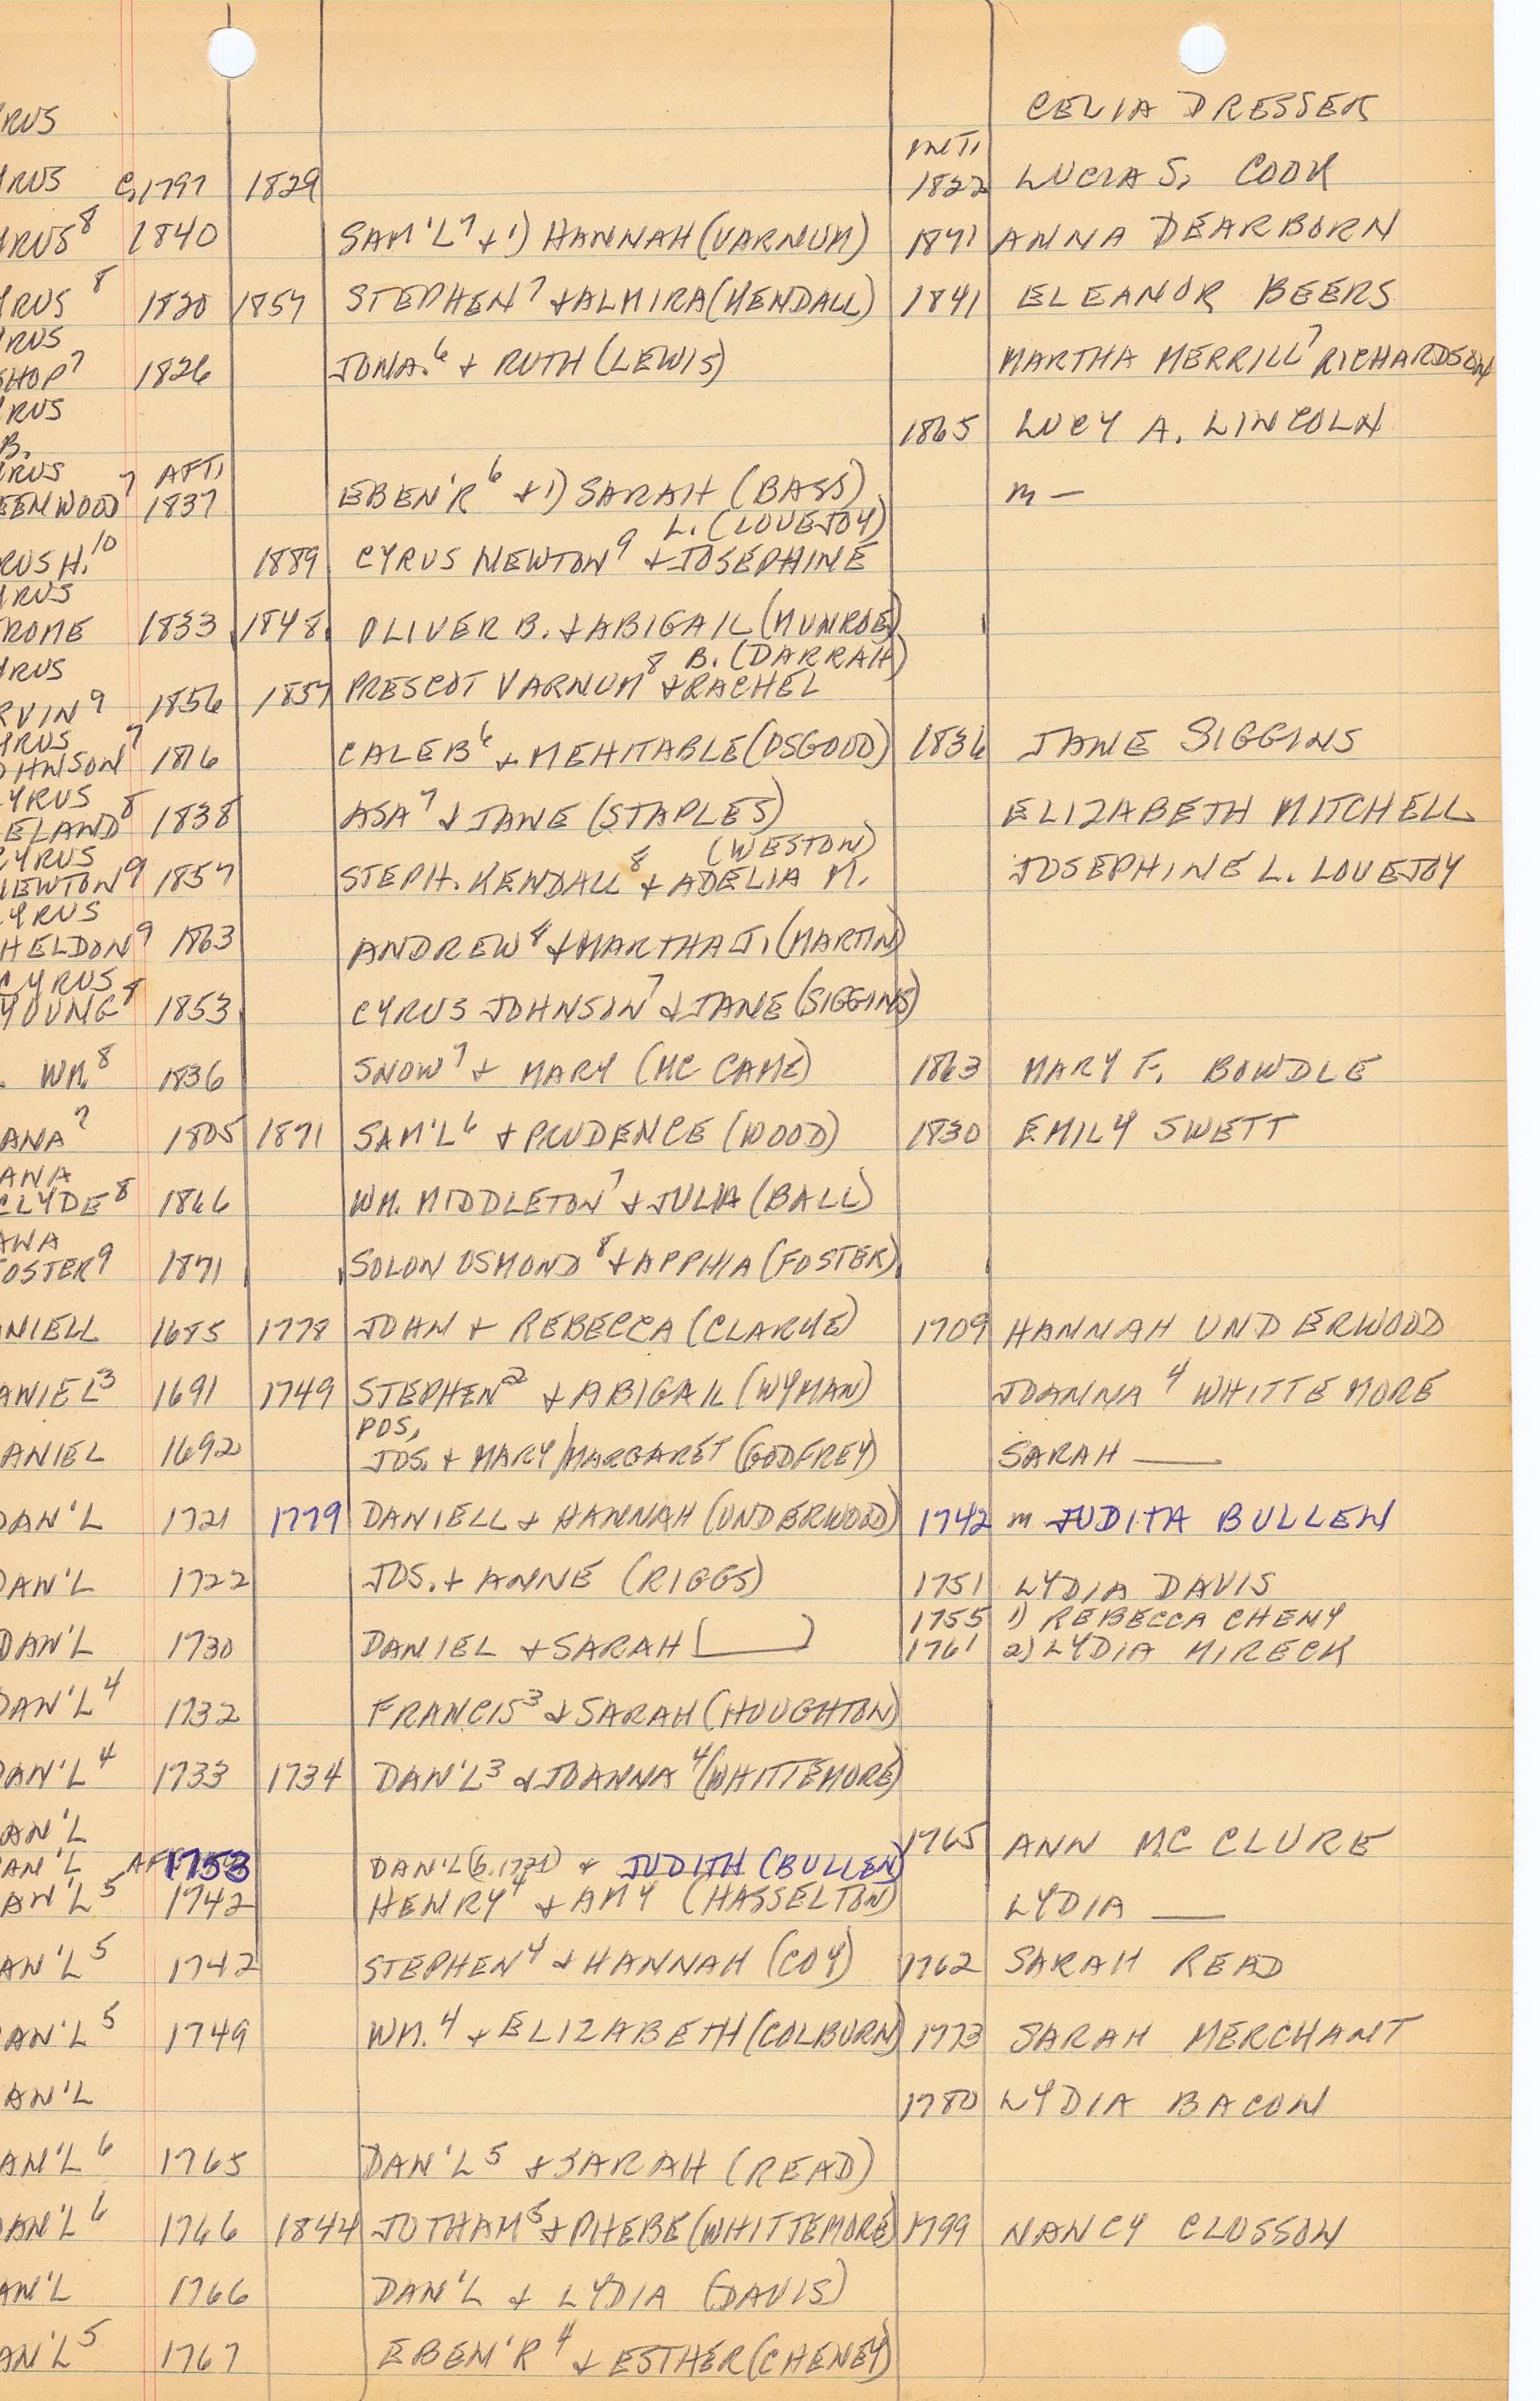 CELIA DRESSER
RUS
INT.
RUS C.1797 1829 1822 LUCIA S. COOK
RUS 8 1840 SAM'L 7 + 1) HANNAH (VARNUM) 1871 ANNA DEARBORN
RUS 8 1820 1857 STEPHEN 7 + ALMIRA (KENDALL) 1841 ELEANOR BEERS
RUS
SHOP 7 1826 JONA. 6 + RUTH (LEWIS) MARTHA MERRILL 7 RICHARDSON
RUS
B. 1865 LUCY A. LINCOLN
RUS AFT.
EENWOOD 7 1837 EBEN'R 6 + 1) SARAH (BASS) m —
L. (LOVEJOY)
RUS H. 10 1889 CYRUS NEWTON 9 + JOSEPHINE
RUS
ROME 1833 1848 OLIVER B. + ABIGAIL (MUNROE)
RUS B. (DARRAH)
RVIN 9 1856 1857 PRESCOT VARNUM 8 + RACHEL
RUS
OHNSON 7 1816 CALEB 6 + MEHITABLE (OSGOOD) 1836 JANE SIGGINS
YRUS
ELAND 8 1838 ASA 7 + JANE (STAPLES) ELIZABETH MITCHELL
CYRUS (WESTON)
NEWTON 9 1857 STEPH. KENDALL 8 + ADELIA M. JOSEPHINE L. LOVEJOY
CYRUS
HELDON 9 1863 ANDREW 8 + MARTHA J. (MARTIN)
CYRUS
YOUNG 8 1853 CYRUS JOHNSON 7 + JANE (SIGGINS)
. WM. 8 1836 SNOW 7 + MARY (MC CANE) 1863 MARY F. BOWDLE
ANA 7 1805 1871 SAM'L 6 + PRUDENCE (WOOD) 1830 EMILY SWETT
ANA
CLYDE 8 1866 WM. MIDDLETON 7 + JULIA (BALL)
ANA
OSTER 9 1871 SOLON OSMOND 8 + APPHIA (FOSTER)
NIELL 1685 1778 JOHN + REBECCA (CLARKE) 1709 HANNAH UNDERWOOD
ANIEL 3 1691 1749 STEPHEN 2 + ABIGAIL (WYMAN) JOANNA 4 WHITTEMORE
POS.
ANIEL 1692 JOS. + MARY/MARGARET (GODFREY) SARAH —
DAN'L 1721 1779 DANIELL + HANNAH (UNDERWOOD) 1742 m JUDITH BULLEN
DAN'L 1722 JOS. + ANNE (RIGGS) 1751 LYDIA DAVIS
1755 1) REBECCA CHENY
DAN'L 1730 DANIEL + SARAH [ ] 1761 2) LYDIA MIRECK
DAN'L 4 1732 FRANCIS 3 + SARAH (HOUGHTON)
DAN'L 4 1733 1734 DAN'L 3 + JOANNA 4 (WHITTEMORE)
AN'L 1765 ANN MC CLURE
AN'L 1753 DAN'L (b. 1721) + JUDITH (BULLEN)
AN'L 5 1742 HENRY 4 + AMY (HASSELTON) LYDIA —
AN'L 5 1742 STEPHEN 4 + HANNAH (COY) 1762 SARAH READ
AN'L 5 1749 WM. 4 + ELIZABETH (COLBURN) 1773 SARAH MERCHANT
AN'L 1780 LYDIA BACON
AN'L 6 1765 DAN'L 5 + SARAH (READ)
AN'L 6 1766 1844 JOTHAM 5 + PHEBE (WHITTEMORE) 1799 NANCY CLOSSON
AN'L 1766 DAN'L + LYDIA (DAVIS)
AN'L 5 1767 EBEN'R 4 + ESTHER (CHENEY)